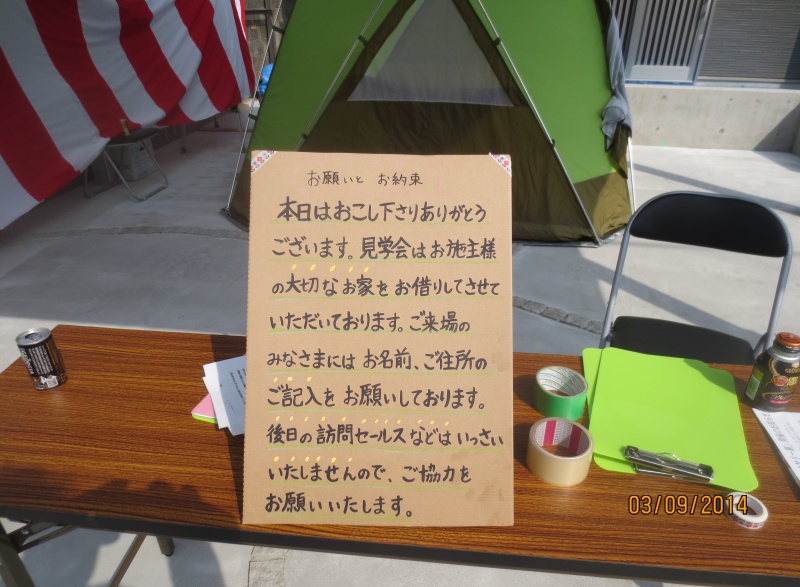 お願いと お約束
本日はおこし下さりありがとう
ございます。見学会はお施主様
の大切なお家をお借りしてさせて
いただいております。ご来場の
みなさまには お名前、ご住所の
ご記入を お願いしております。
後日の訪問セールスなどはいっさい
いたしませんので、ご協力を
お願いいたします。
03/09/2014